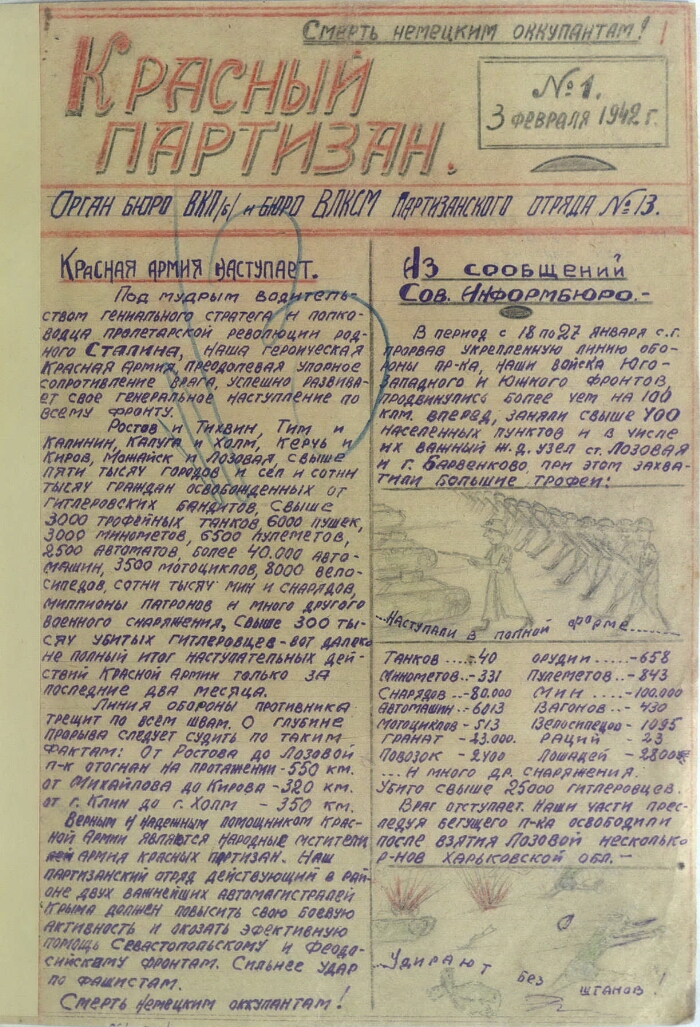 Смерть немецким оккупантам!
Красный
партизан.
№1.
3 февраля 1942 г.
Орган бюро ВКП/б/ и бюро ВЛКСМ партизанского отряда №13.
Красная армия наступает.
Под мудрым водитель-
ством гениального стратега и полко-
водца пролетарской революции род-
ного Сталина, наша героическая
Красная Армия, преодолевая упорное
сопротивление врага, успешно развива-
ет свое генеральное наступление по
всему фронту.
Ростов и Тихвин, Тим и
Калинин, Калуга и Холм, Керчь и
Киров, Можайск и Лозовая, свыше
пяти тысяч городов и сёл и сотни
тысяч граждан освобожденных от
гитлеровских бандитов, свыше
3000 трофейных танков, 6000 пушек,
3000 минометов, 6500 пулеметов,
2500 автоматов, более 40.000 авто-
машин, 3500 мотоциклов, 8000 вело-
сипедов, сотни тысяч мин и снарядов,
миллионы патронов и много другого
военного снаряжения, свыше 300 ты-
сяч убитых гитлеровцев - вот далеко
не полный итог наступательных дей-
ствий Красной Армии только за
последние два месяца.
Линия обороны противника
трещит по всем швам. О глубине
прорыва следует судить по таким
фактам: От Ростова до Лозовой
п-к отогнан на протяжении - 550 км.
от Михайлова до Кирова - 320 км.
от г. Клин до г. Холм - 350 км.
Верным и надежным помощником Крас-
ной Армии являются народные мстители
армия красных партизан. Наш
партизанский отряд действующий в рай-
оне двух важнейших автомагистралей
Крыма должен повысить свою боевую
активность и оказать эфективную
помощь Севастопольскому и Феодо-
сийскему фронтам. Сильнее удар
по фашистам.
Смерть немецким оккупантам!
Из сообщений
Сов. Информбюро.-
В период с 18 по 27 января с.г.
прорвав укрепленную линию обо-
роны пр-ка, наши войска Юго-
Западного и Южного фронтов,
продвинулись более чем на 100
клм. вперед, заняли свыше 400
населенных пунктов и в числе
их важный ж.д. узел ст. Лозовая
и г. Барвенково, при этом захва-
тили большие трофеи:
...Наступали в полной форме.......
Танков....-40 орудии.....-658
Минометов-331 Пулеметов-843
Снарядов-80.000 Мин....-100.000
Автомашин-6013 Вагонов-430
Мотоциклов-513 Велосипедов-1095
Гранат-23.000. Раций-23
Повозок-2400 Лошадей-2800
... И много др. снаряжения.
Убито свыше 25000 гитлеровцев.
Враг отступает. Наши части прес-
ледуя бегущего п-ка освободили
после взятия Лозовой несколько
р-нов Харьковской обл.-
...Удирают без штанов!